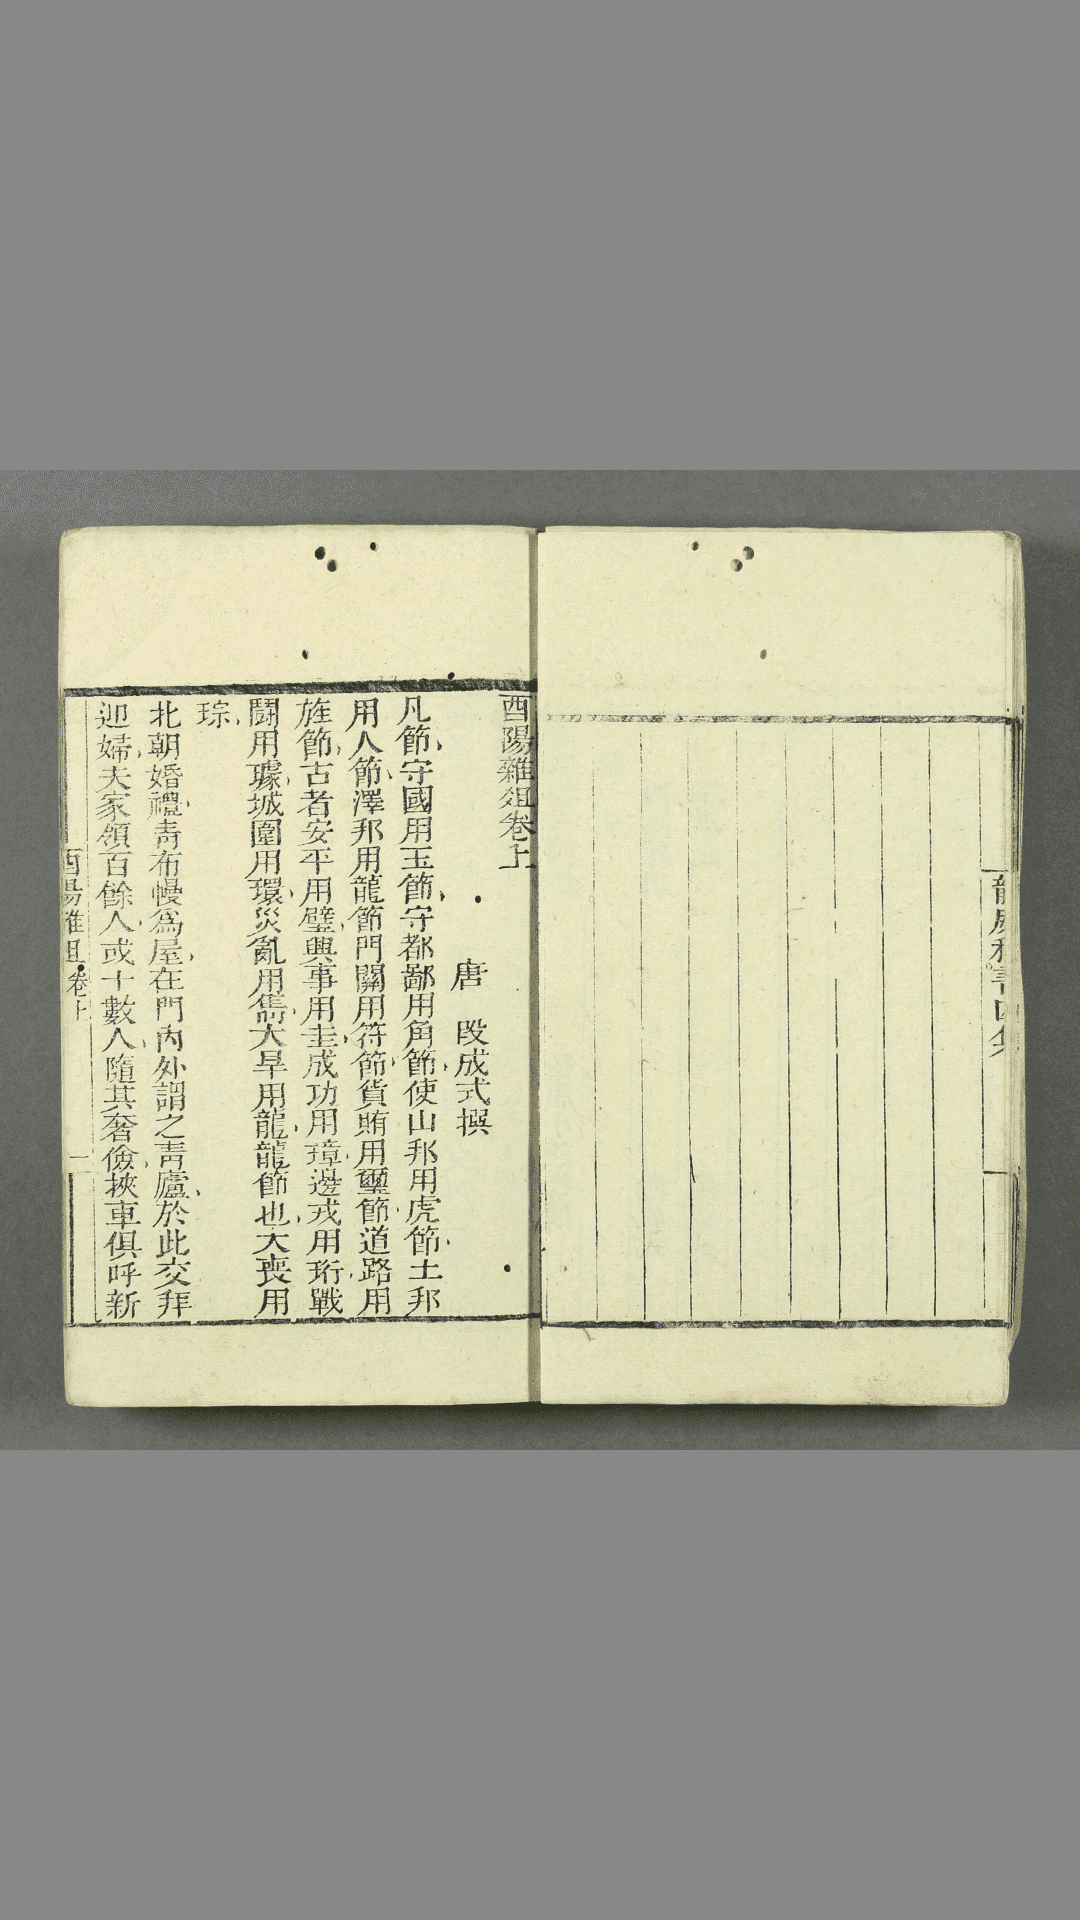 龍威秘書四集
酉陽雜俎卷上
唐　段成式撰
凡節守國用玉節守都鄙用角節使山邦用虎節土邦
用人節澤邦用龍節門關用符節貨賄用璽節道路用
旌節古者安平用璧興事用圭成功用璋邊戎用珩戰
鬪用璩城圍用環災亂用雋大旱用龍龍節也大喪用
琮
北朝婚禮青布幔爲屋在門內外謂之青廬於此交拜
迎婦夫家領百餘人或十數人隨其奢儉挾車俱呼新
酉陽雜俎卷上
一